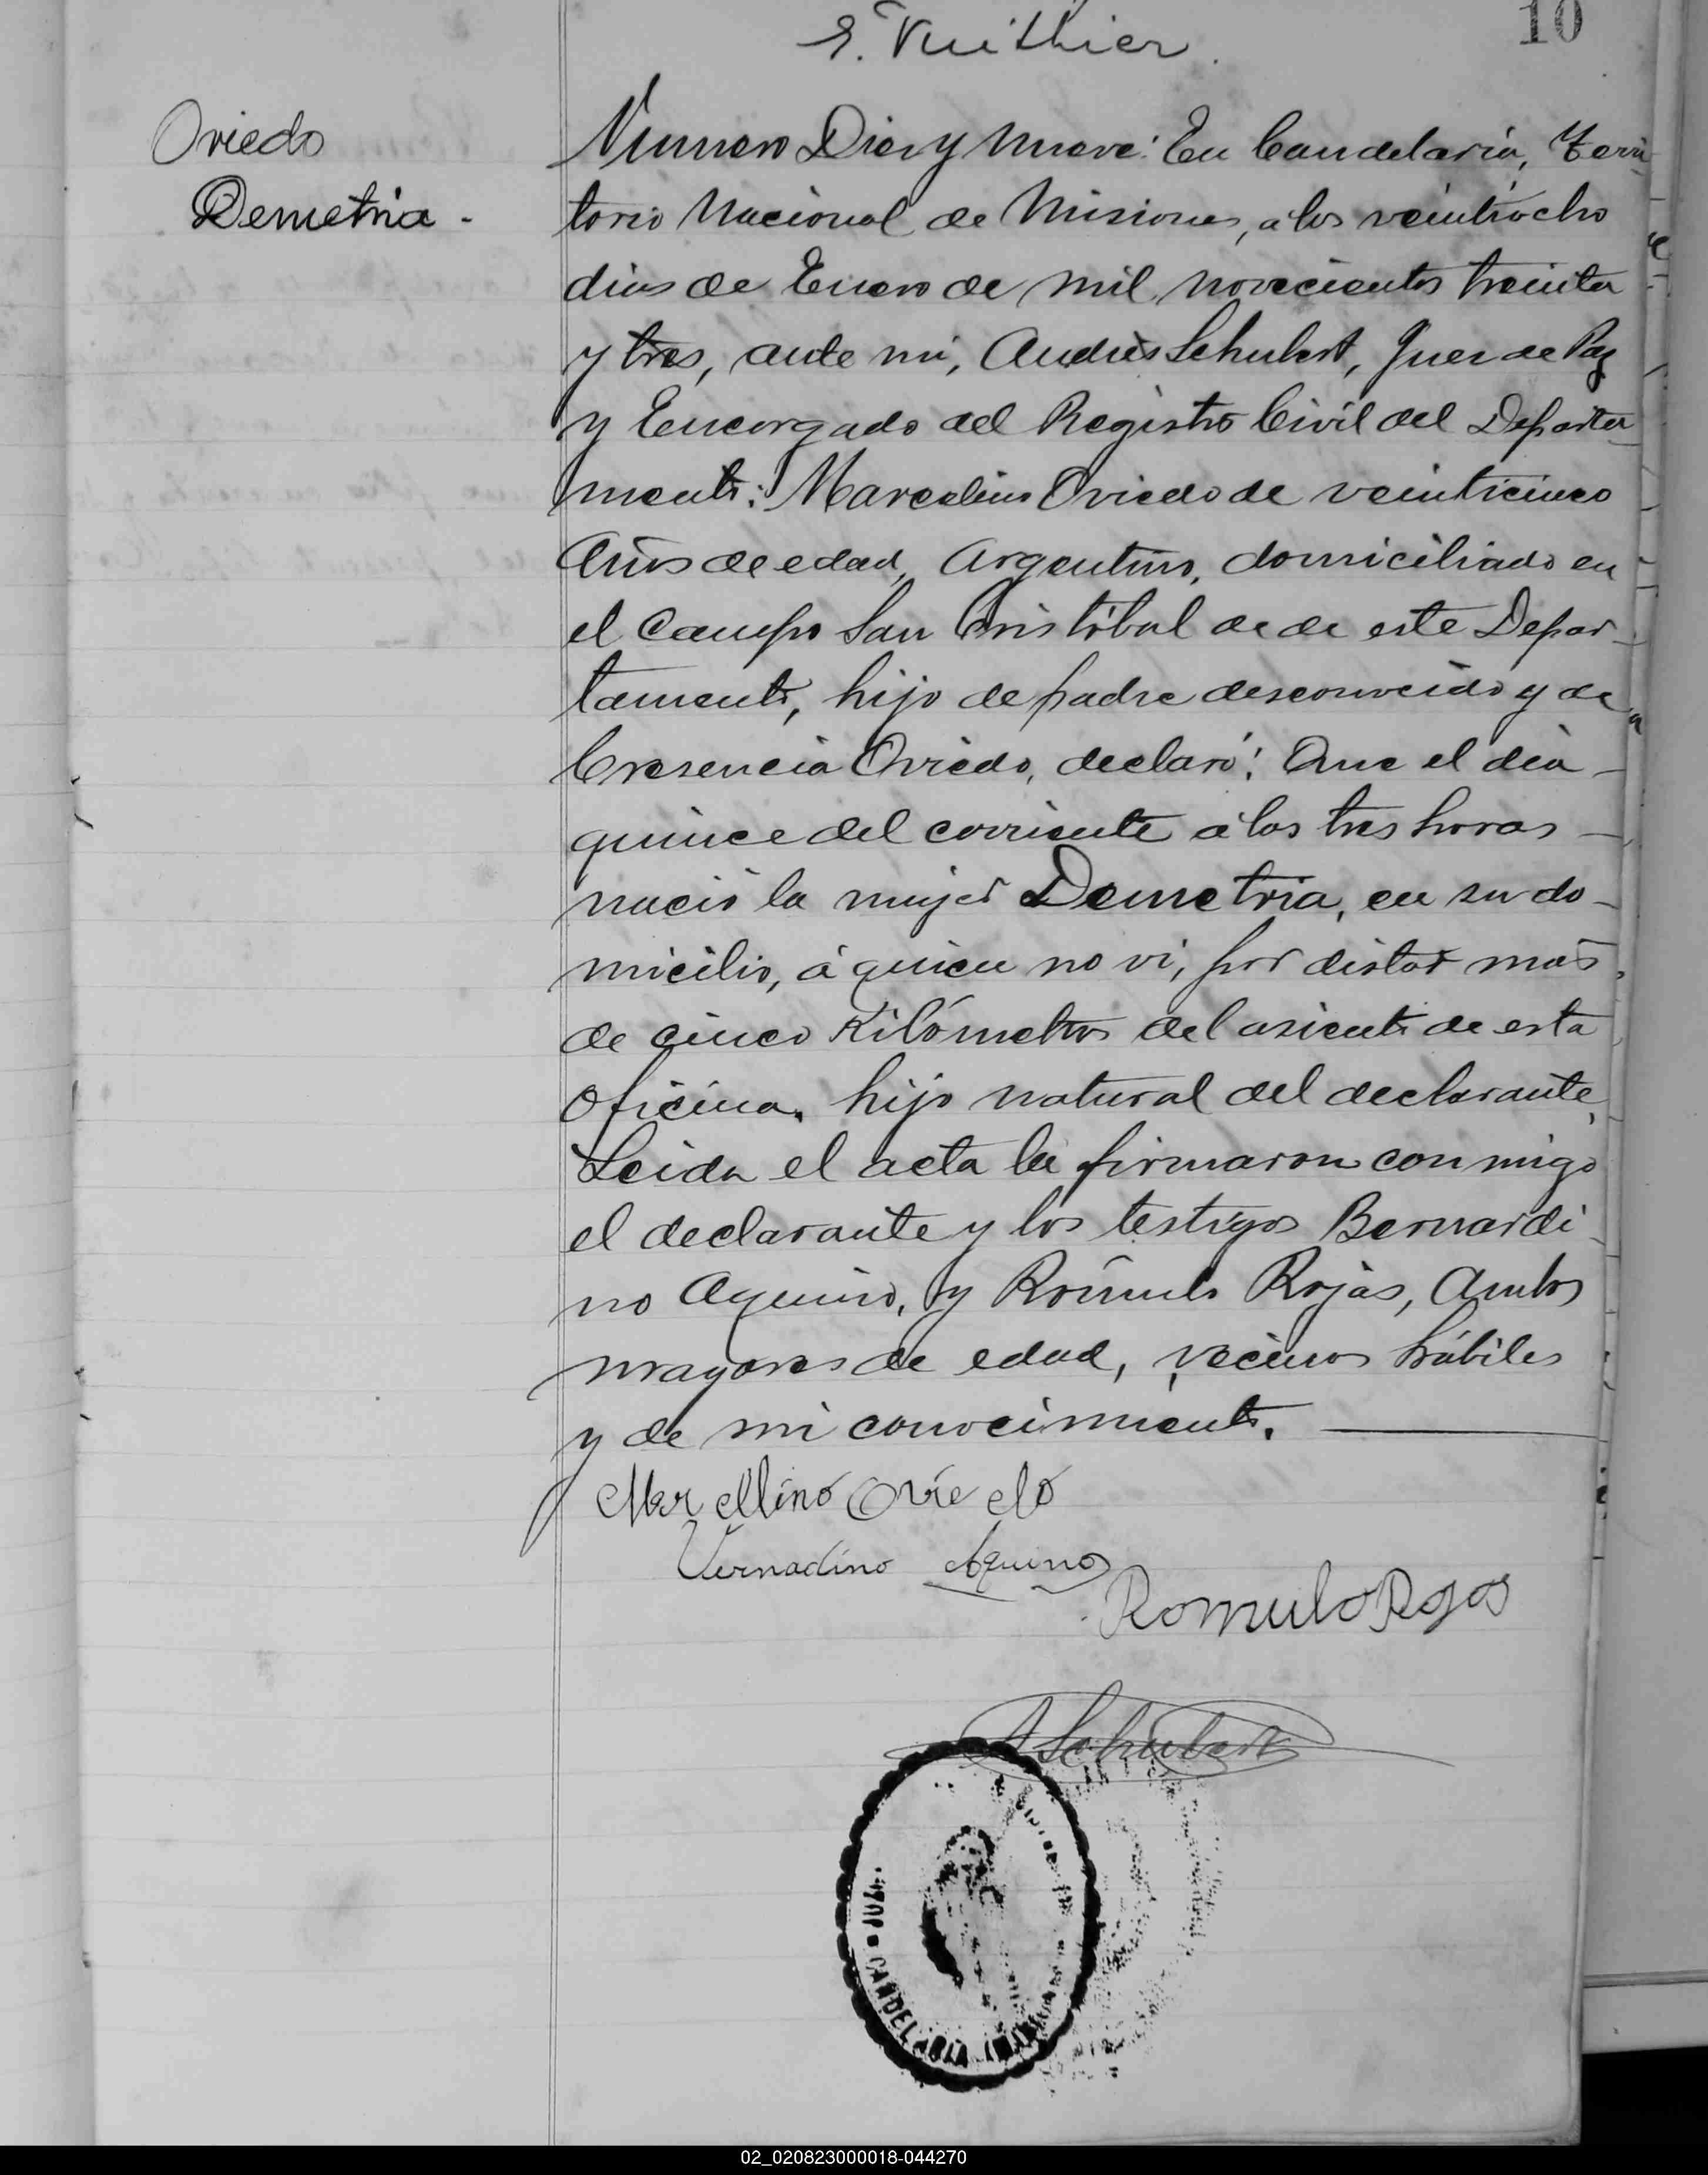 E. Vuithier.
10
Oviedo
Demetria -
Número Diez y nueve: En Candelaria, Terri-
torio Nacional de Misiones, á los veintiocho
dias de Enero de mil novecientos treinta
y tres, ante mi, Andrés Schubert, Juez de Paz
y Encargado del Registro Civil del Departa-
mento: Marcelino Oviedo de veinticinco
Años de edad, Argentino, domiciliado en
el Campo San Cristóbal de de este Depar-
tamento, hijo de padre desconocido y de
Cresencia Oviedo, declaró: Que el dia -
quince del corriente á las tres horas -
nació la mujer Demetria, en su do-
micilio, á quien no vi, por distar mas
de cinco Kilómetros del asiento de esta
Oficina. hijo natural del declarante.
Leida el acta la firmaron conmigo
el declarante y los testigos Bernardi-
no Aquino, y Rómulo Rojas, Ambos
mayores de edad, vecinos hábiles
y de mi conocimiento. —
Marcellino Oviedo
Vernadino Aquino
Romulo Rojas
A Schubert
CANDELARIA
02_020823000018-044270